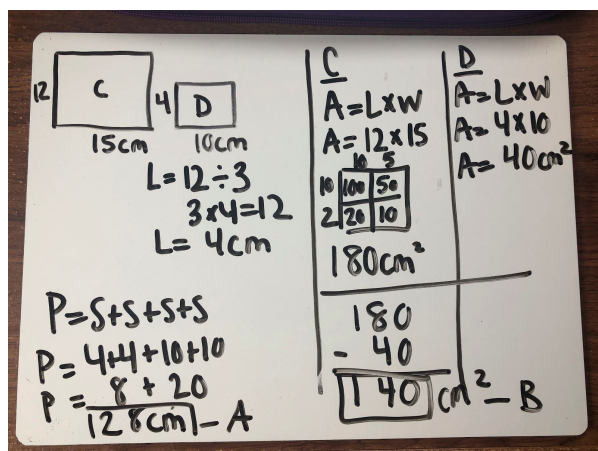 12
C
15cm
4
D
10cm
L=12÷3
3x4=12
L= 4cm
P=S+S+S+S
P= 4+4+10+10
P= 8 + 20
28cm - A
C
A=LxW
A=12x15
10 5
10 100 50
2 20 10
180cm²
D
A=LxW
A=4x10
A= 40cm²
180
- 40
140 cm² - B